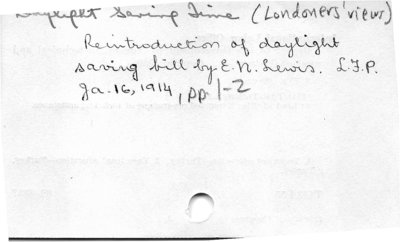 Daylight Saving Time (Londoners' views)
Reintroduction of daylight
saving bill by E.N. Lewis. L.F.P.
Ja. 16, 1914, pp 1-2